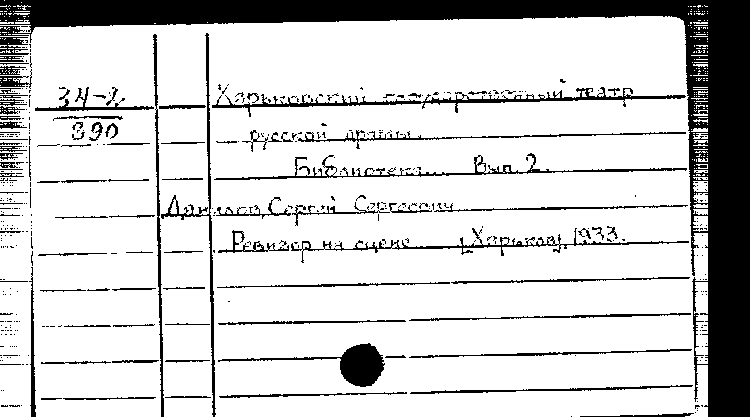 34-2
890
Харьковский государственный театр
русской драмы.
Библиотека... Вып. 2.
Данилов, Сергей Сергеевич
Ревизор на сцене... [Харьков], 1933.